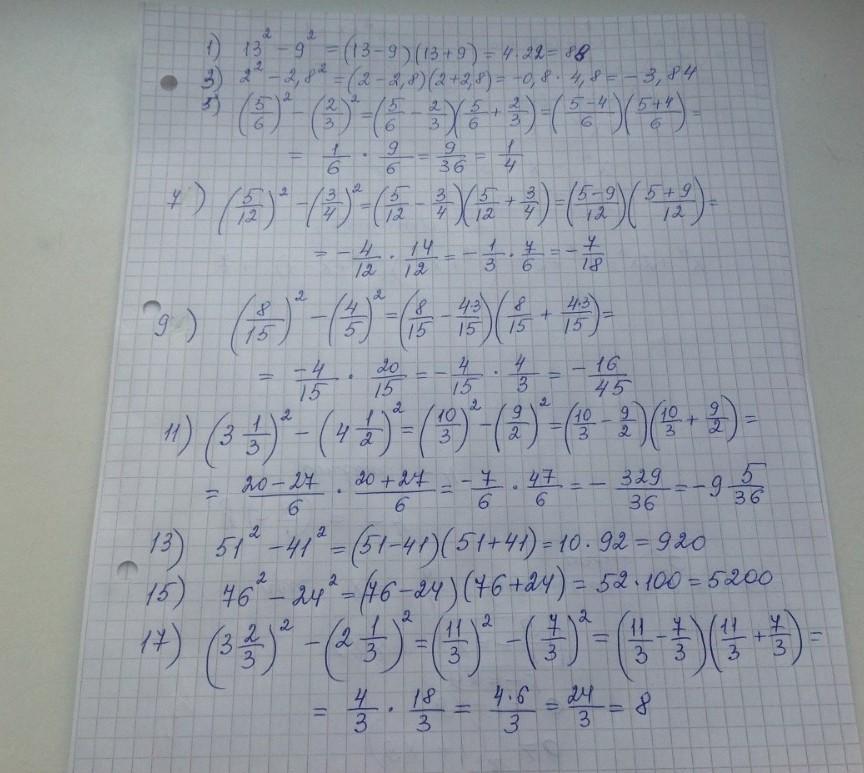 1) 13² − 9² = (13−9)(13+9) = 4·22 = 88
3) 2² − 2,8² = (2−2,8)(2+2,8) = −0,8 · 4,8 = −3,84
5) (5/6)² − (2/3)² = (5/6 − 2/3)(5/6 + 2/3) = ((5−4)/6)((5+4)/6) =
= 1/6 · 9/6 = 9/36 = 1/4
7) (5/12)² − (3/4)² = (5/12 − 3/4)(5/12 + 3/4) = ((5−9)/12)((5+9)/12) =
= −4/12 · 14/12 = −1/3 · 7/6 = −7/18
9) (8/15)² − (4/5)² = (8/15 − 4·3/15)(8/15 + 4·3/15) =
= −4/15 · 20/15 = −4/15 · 4/3 = −16/45
11) (3 1/3)² − (4 1/2)² = (10/3)² − (9/2)² = (10/3 − 9/2)(10/3 + 9/2) =
= (20−27)/6 · (20+27)/6 = −7/6 · 47/6 = −329/36 = −9 5/36
13) 51² − 41² = (51−41)(51+41) = 10·92 = 920
15) 76² − 24² = (76−24)(76+24) = 52·100 = 5200
17) (3 2/3)² − (2 1/3)² = (11/3)² − (7/3)² = (11/3 − 7/3)(11/3 + 7/3) =
= 4/3 · 18/3 = 4·6/3 = 24/3 = 8